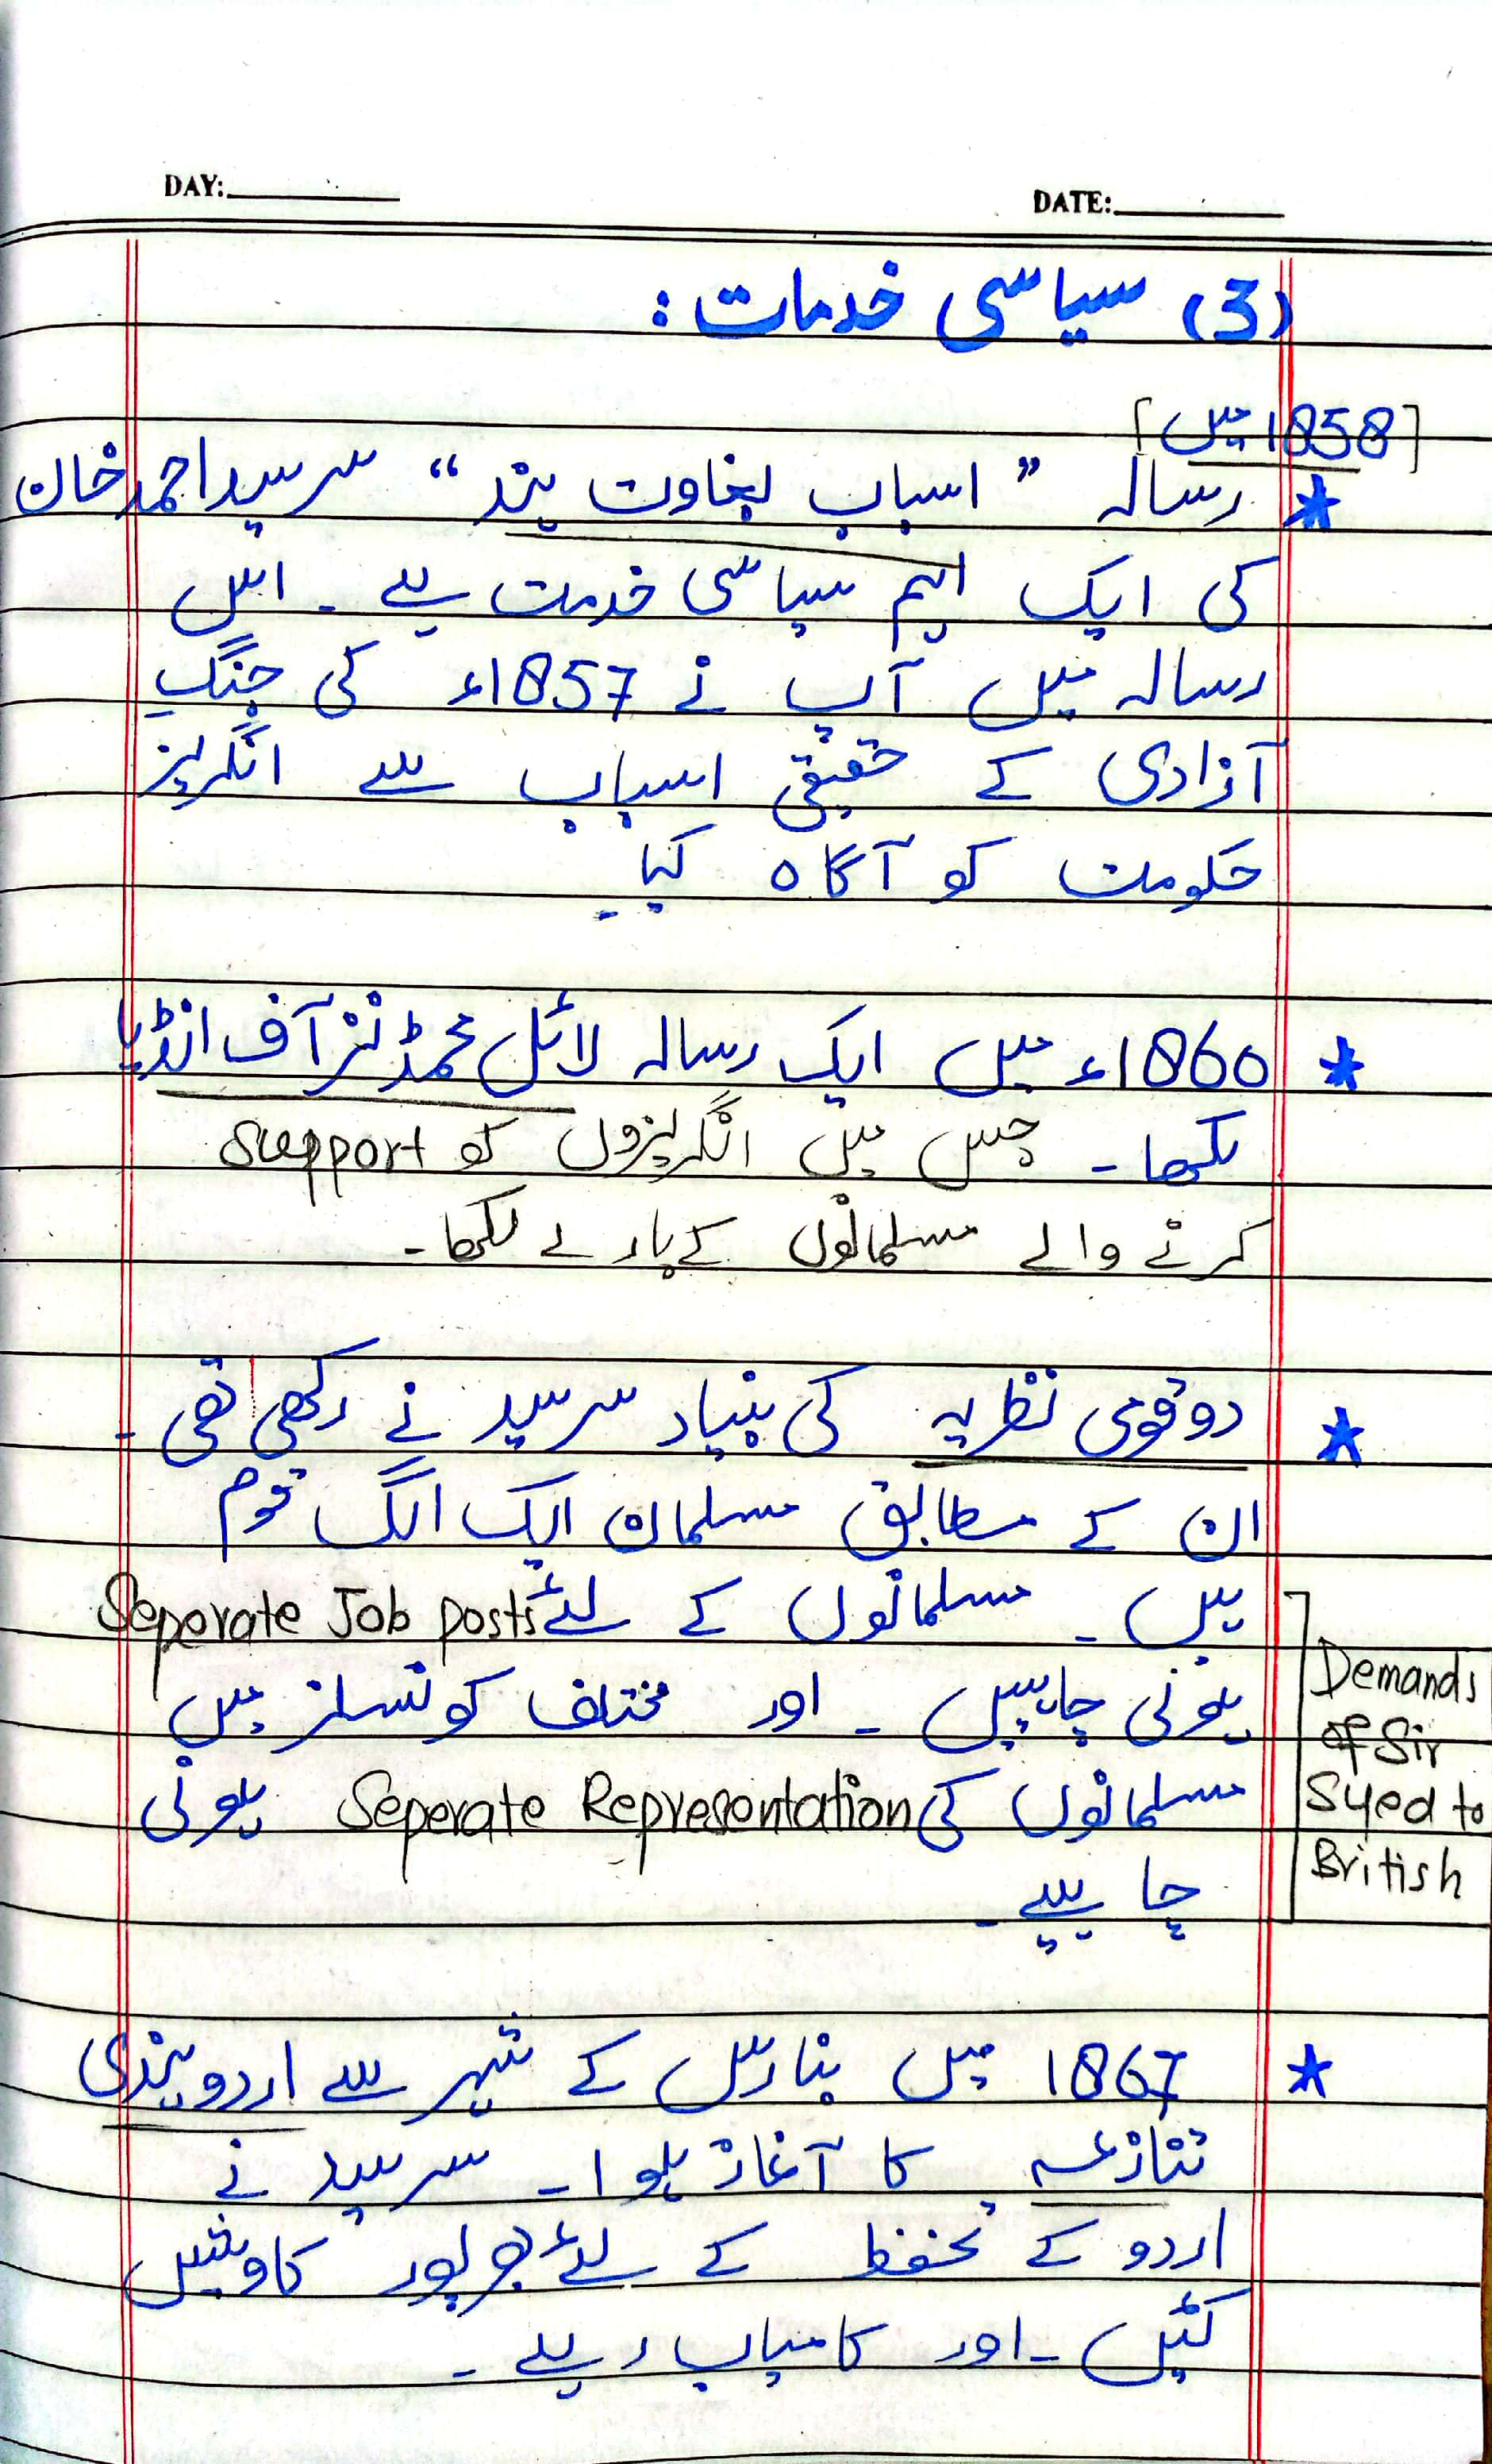 DAY:
DATE:
(3) سیاسی خدمات :
[1858 میں]
* رسالہ " اسباب بغاوت ہند " سرسید احمد خان
کی ایک اہم سیاسی خدمت ہے ۔ اس
رسالہ میں آپ نے 1857ء کی جنگِ
آزادی کے حقیقی اسباب سے انگریز
حکومت کو آگاہ کیا ۔
* 1860ء میں ایک رسالہ لائل محمڈنز آف انڈیا
لکھا ۔ جس میں انگریزوں کو support
کرنے والے مسلمانوں کے بارے لکھا ۔
* دو قومی نظریہ کی بنیاد سرسید نے رکھی تھی ۔
ان کے مطابق مسلمان ایک الگ قوم
ہیں ۔ مسلمانوں کے لئے Seperate Job posts
ہونی چاہییں ۔ اور مختلف کونسلز میں
مسلمانوں کی Seperate Representation ہونی
چاہیے ۔
Demands
of Sir
Syed to
British
* 1867 میں بنارس کے شہر سے اردو ہندی
تنازعہ کا آغاز ہوا ۔ سرسید نے
اردو کے تحفظ کے لئے بھرپور کاوشیں
کیں ۔ اور کامیاب رہے ۔